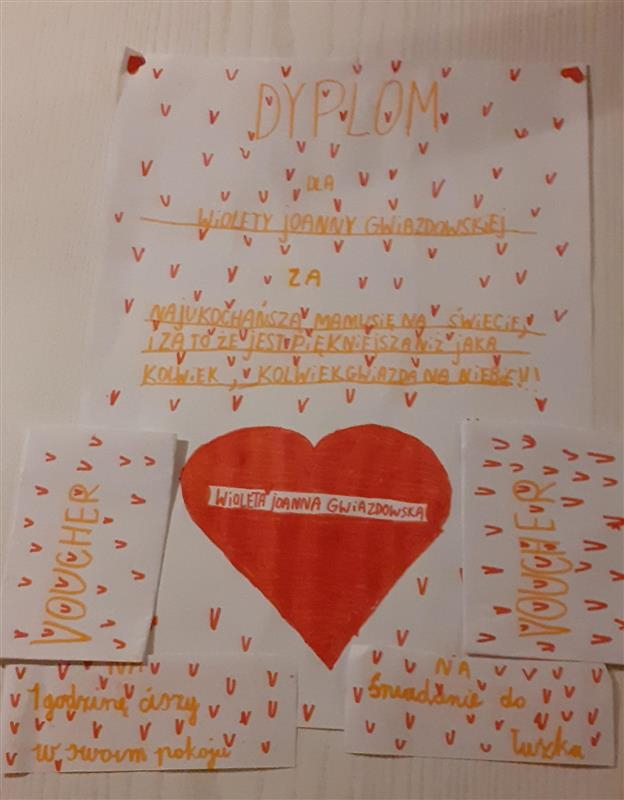 DYPLOM
DLA
WIOLETY JOANNY GWIAZDOWSKIEJ
ZA
NAJUKOCHAŃSZĄ MAMUSIĘ NA ŚWIECIE,
I ZA TO ŻE JEST PIĘKNIEJSZA NIŻ JAKA
KOLWIEK, KOLWIEK GWIAZDA NA NIEBIE!!!
WIOLETA JOANNA GWIAZDOWSKA
VOUCHER
NA
1 godzinę ciszy
w swoim pokoju
VOUCHER
NA
Śniadanie do
łuszka